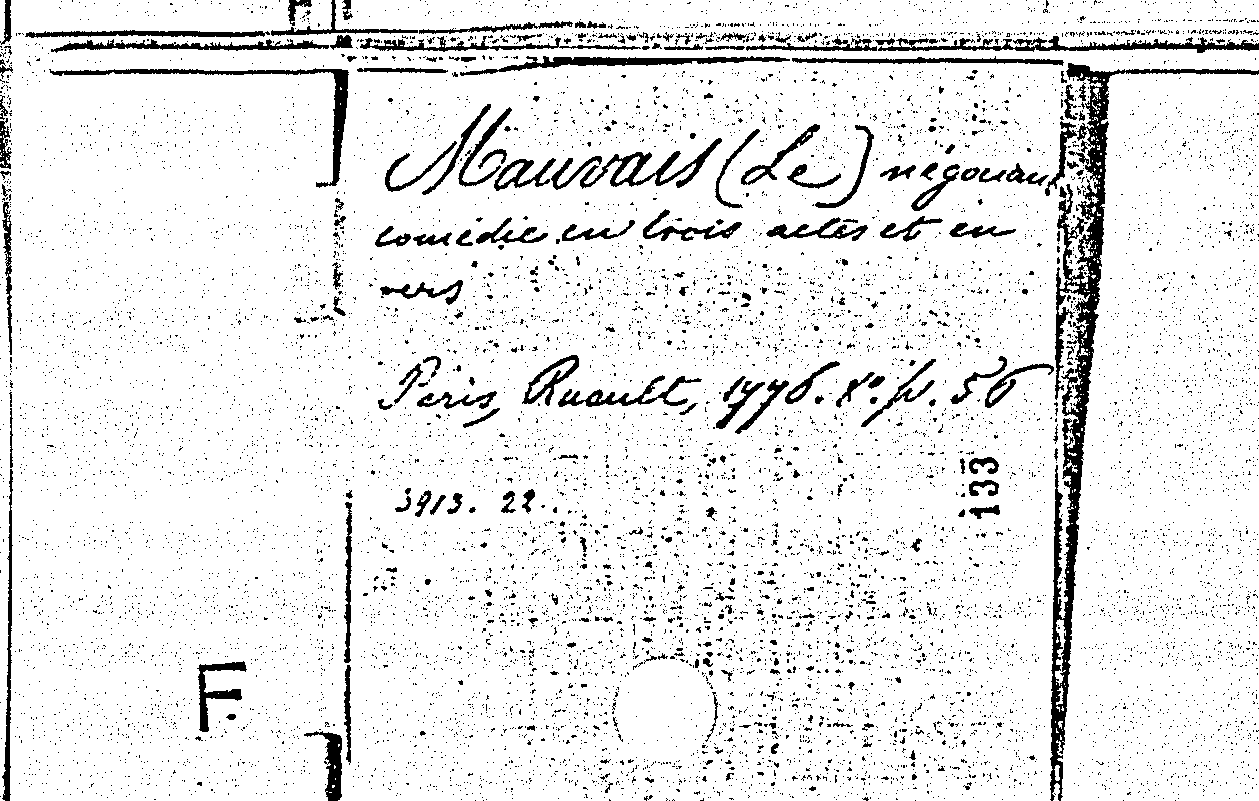 Mauvais (Le) négociant
comédie en trois actes et en
vers
Paris, Ruault, 1776. 8º. p. 56
3913. 22.
133
F